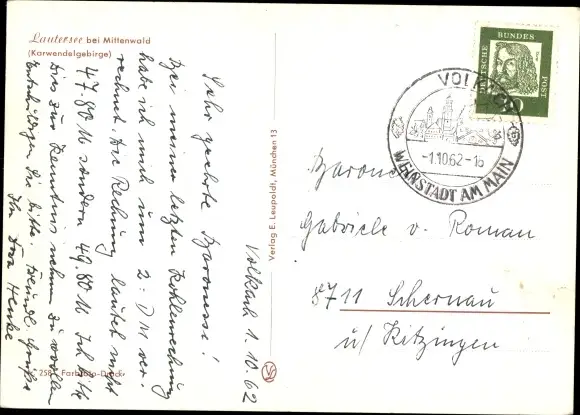 Lautersee bei Mittenwald
(Karwendelgebirge)
Volkach 1.10.62
Sehr geehrte Baronesse!
Bei meiner letzten Kohlenrechnung
habe ich mich um 2.- DM ver-
rechnet. Die Rechnung lautet nicht
47.80 M sondern 49.80 M Ich bitte
dies zur Kenntnis nehmen zu wollen
Entschuldigen Sie bitte. Freundl. Grüße
Ihr Frau Henke
258 Farbfoto-Druck
Verlag E. Leupoldt, München 13
DEUTSCHE BUNDESPOST
VOLKACH
-1.10.62-16
WEINSTADT AM MAIN
Baronesse
Gabriele v. Roman
8711 Schernau
ü/ Kitzingen